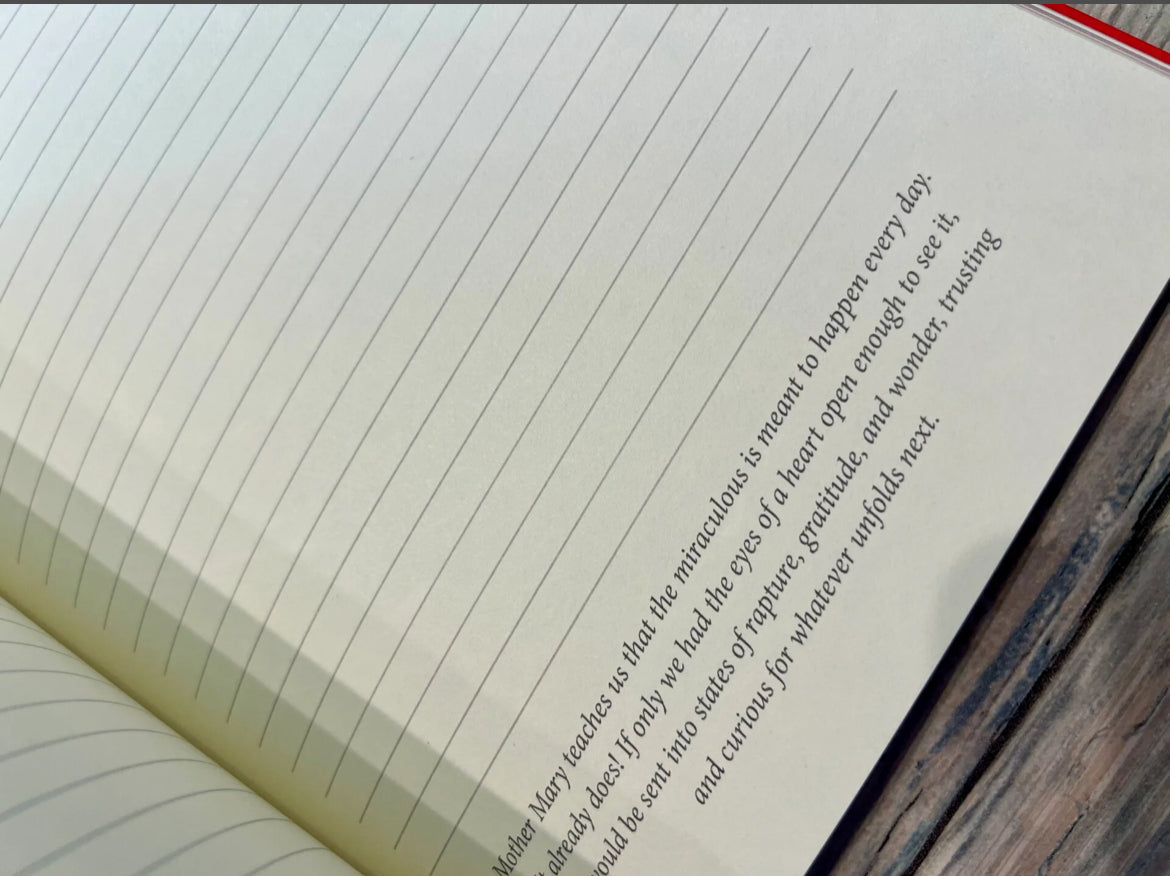 Mother Mary teaches us that the miraculous is meant to happen every day.
already does! If only we had the eyes of a heart open enough to see it,
would be sent into states of rapture, gratitude, and wonder, trusting
and curious for whatever unfolds next.